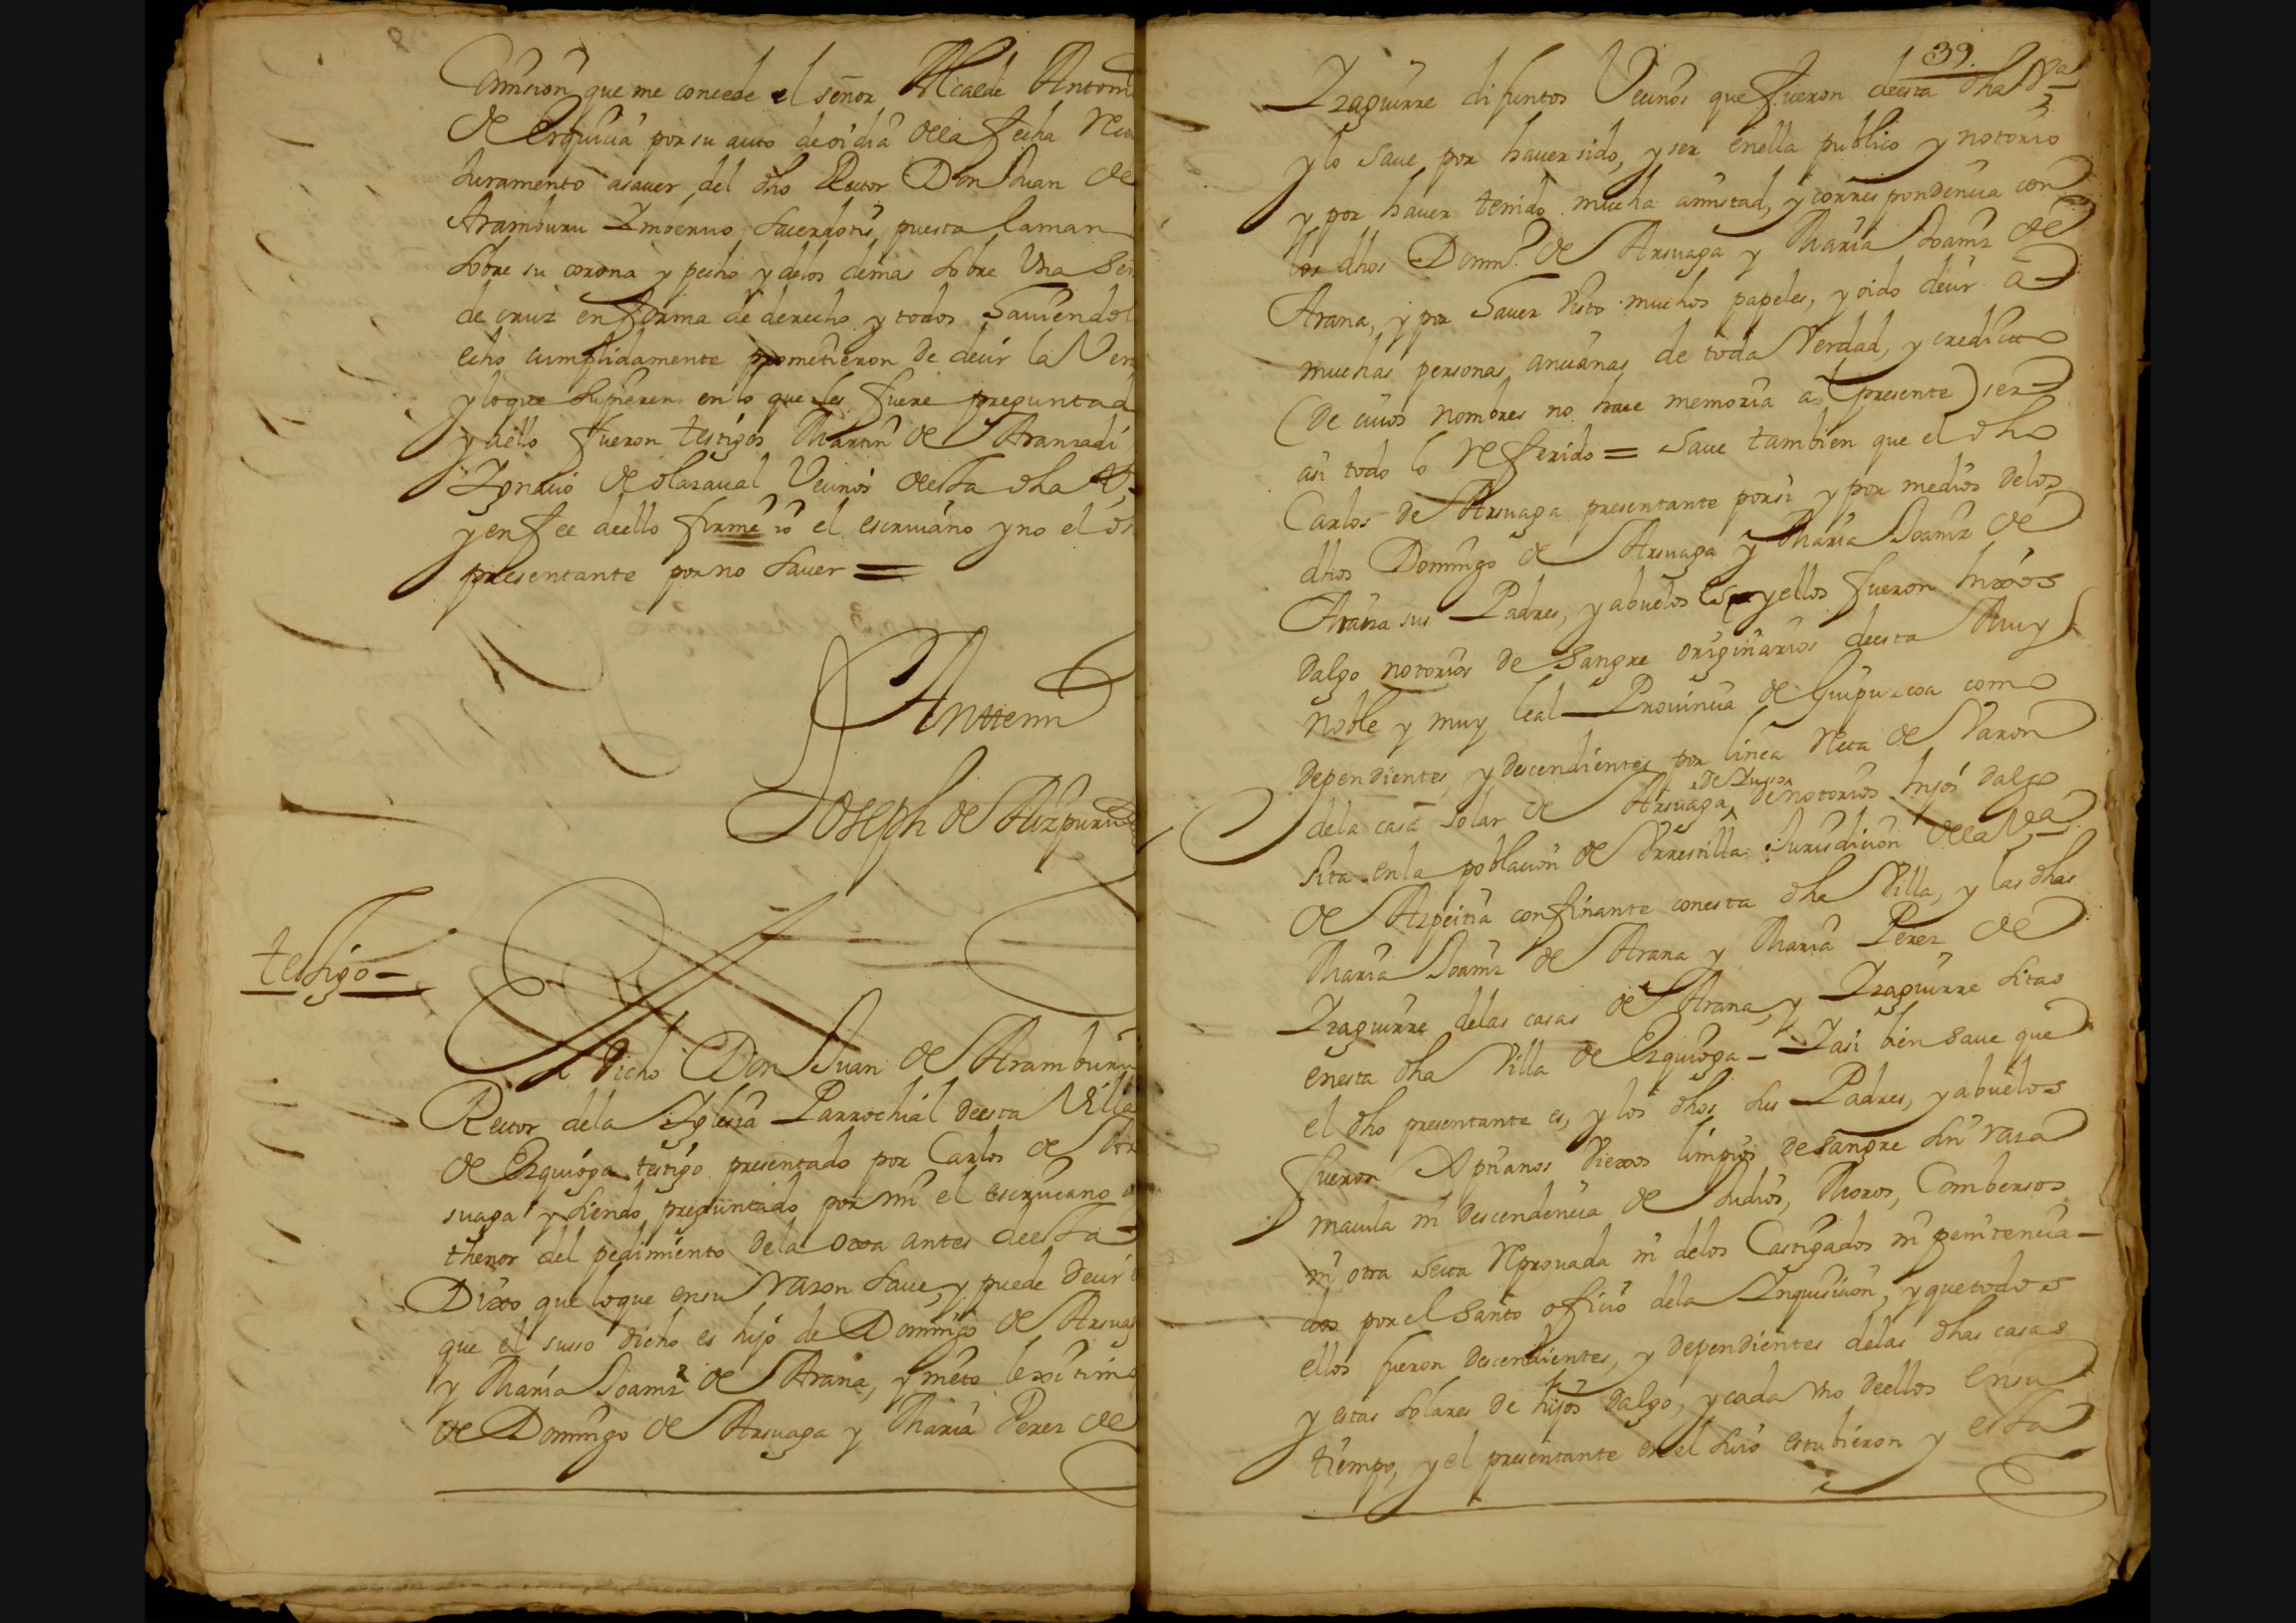 Comision que me concede el señor Alcalde Anton
de Ezquioga por su auto de oi dia dela fecha Reci
Juramento asauer del dho Rector Don Juan de
Aramburu Imberuo Sacerdotis puesta la man
sobre su corona y pecho y delos demas sobre Vna Señ
de cruz en forma de derecho y todos hauiendol
echo cumplidamente prometieron de decir la Verd
y loque supieren en lo que les fuere preguntad
y dello fueron testigos Martin de Aranzadi
Ignacio de olazaual Vecinos desta dha Vª
y en fee dello firme io el escriuano y no el dh
presentante por no sauer =
Anttemi
Joseph de Aizpuru
testigo
El dicho Don Juan de Aramburu
Rector dela Iglesia Parrochial desta Villa
de Ezquioga testigo presentado por Carlos de Ar
suaga y siendo preguntado por mi el escriuano
thenor del pedimiento dela oxa antes desta
Dixo que loque en su razon saue, y puede decir
que el suso dicho es hijo de Domingo de Arsuag
y Maria Joaniz de Arana, y nieto lexitimo
de Domingo de Arsuaga y Maria Perez de
39.
Izaguirre difuntos Vecinos que fueron deesta dha Vª
y lo saue por hauer sido, y ser en ella publico y notorio
y por hauer tenido mucha amistad, y correspondencia con
los dhos Domº de Arsuaga y Maria Joaniz de
Arana, y por hauer visto muchos papeles, y oido decir a
muchas personas ancianas de toda Verdad, y credito
(de cuios nombres no hace memoria al presente) ser
asi todo lo Referido = Saue tambien que el dho
Carlos de Arsuaga presentante por si y por medios delos
dhos Domingo de Arsuaga y Maria Joaniz de
Arana sus Padres, y abuelos es y ellos fueron hixos
dalgo notorios de sangre originarios deesta Muy
noble y muy leal Prouincia de Guipuzcoa como
dependientes, y descendientes por linea Recta de Varon
dela casa solar de Arsuaga de notorios hijos dalgo
sita en la poblacion de Vrrestilla Jurisdicion dela Vª
de Azpeitia confinante con esta dha Villa, y las dhas
Maria Joaniz de Arana y Maria Perez de
Izaguirre delas casas de Arana, y Izaguirre sitas
en esta dha Villa de Ezquioga - Y asi bien saue que
el dho presentante es, y los dhos sus Padres, y abuelos
fueron Xpianos viexos limpios de sangre sin raza
macula ni descendencia de Judios, Moros, Combersos
ni otra secta Reprouada ni delos Castigados ni penitencia-
dos por el santo oficio dela Inquisicion, y que todos
ellos fueron descendientes, y dependientes delas dhas casas
y estas solares de hijos dalgo, y cada vno deellos en su
tiempo, y el presentante en el suio estubieron y esta